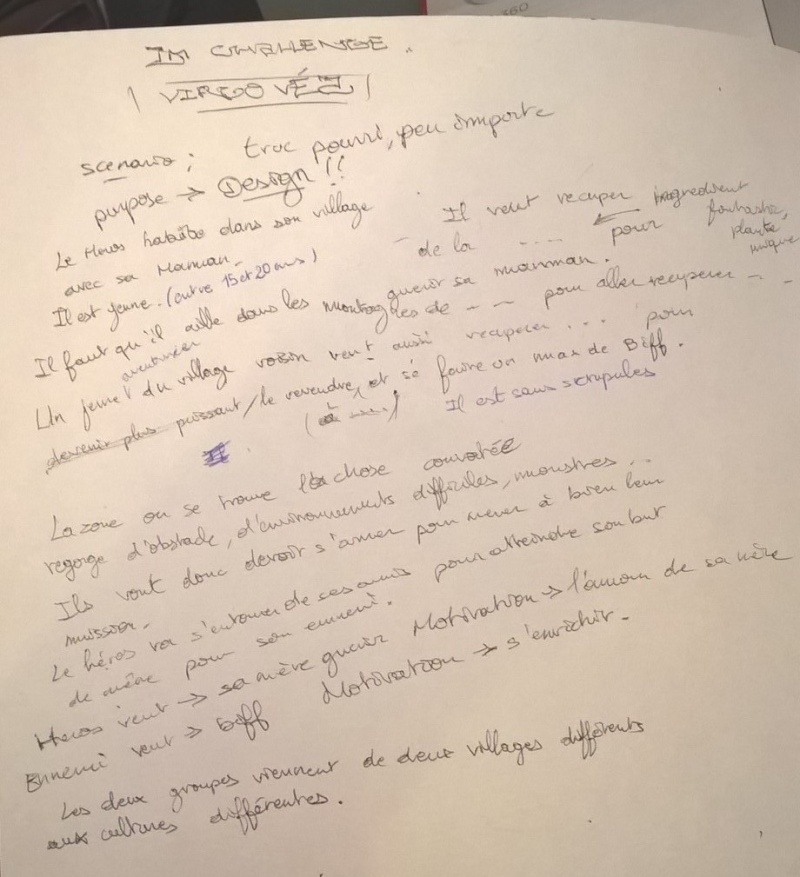 360
IM CHALLENGE.
VIRGO VÉZ
scenario ; truc pourri, peu importe
purpose → Design !!
Le Heros habite dans son village
avec sa Maman.
Il est jeune. (entre 15 et 20 ans)
Il veut recuper ingredient
de la .... pour fantastic,
plante
unique
guerir sa manman.
Il faut qu'il aille dans les montagnes de - - pour aller recuperer - -
aventurier
Un jeune du village voisin veut aussi recuperer ... pour
devenir plus puissant/le revendre, et se faire un max de Biff.
Il est sans scrupules
La zone ou se trouve la chose convoitée
regorge d'obstacle, d'environnements difficiles, monstres ...
Ils vont donc devoir s'armer pour mener à bien leur
mission.
Le héros va s'entourer de ses amis pour atteindre son but
de même pour son ennemi.
Heros veut → sa mère guerir Motivation → l'amour de sa mère
Ennemi veut → Biff Motivation → s'enrichir.
Les deux groupes viennent de deux villages différents
aux cultures différentes.